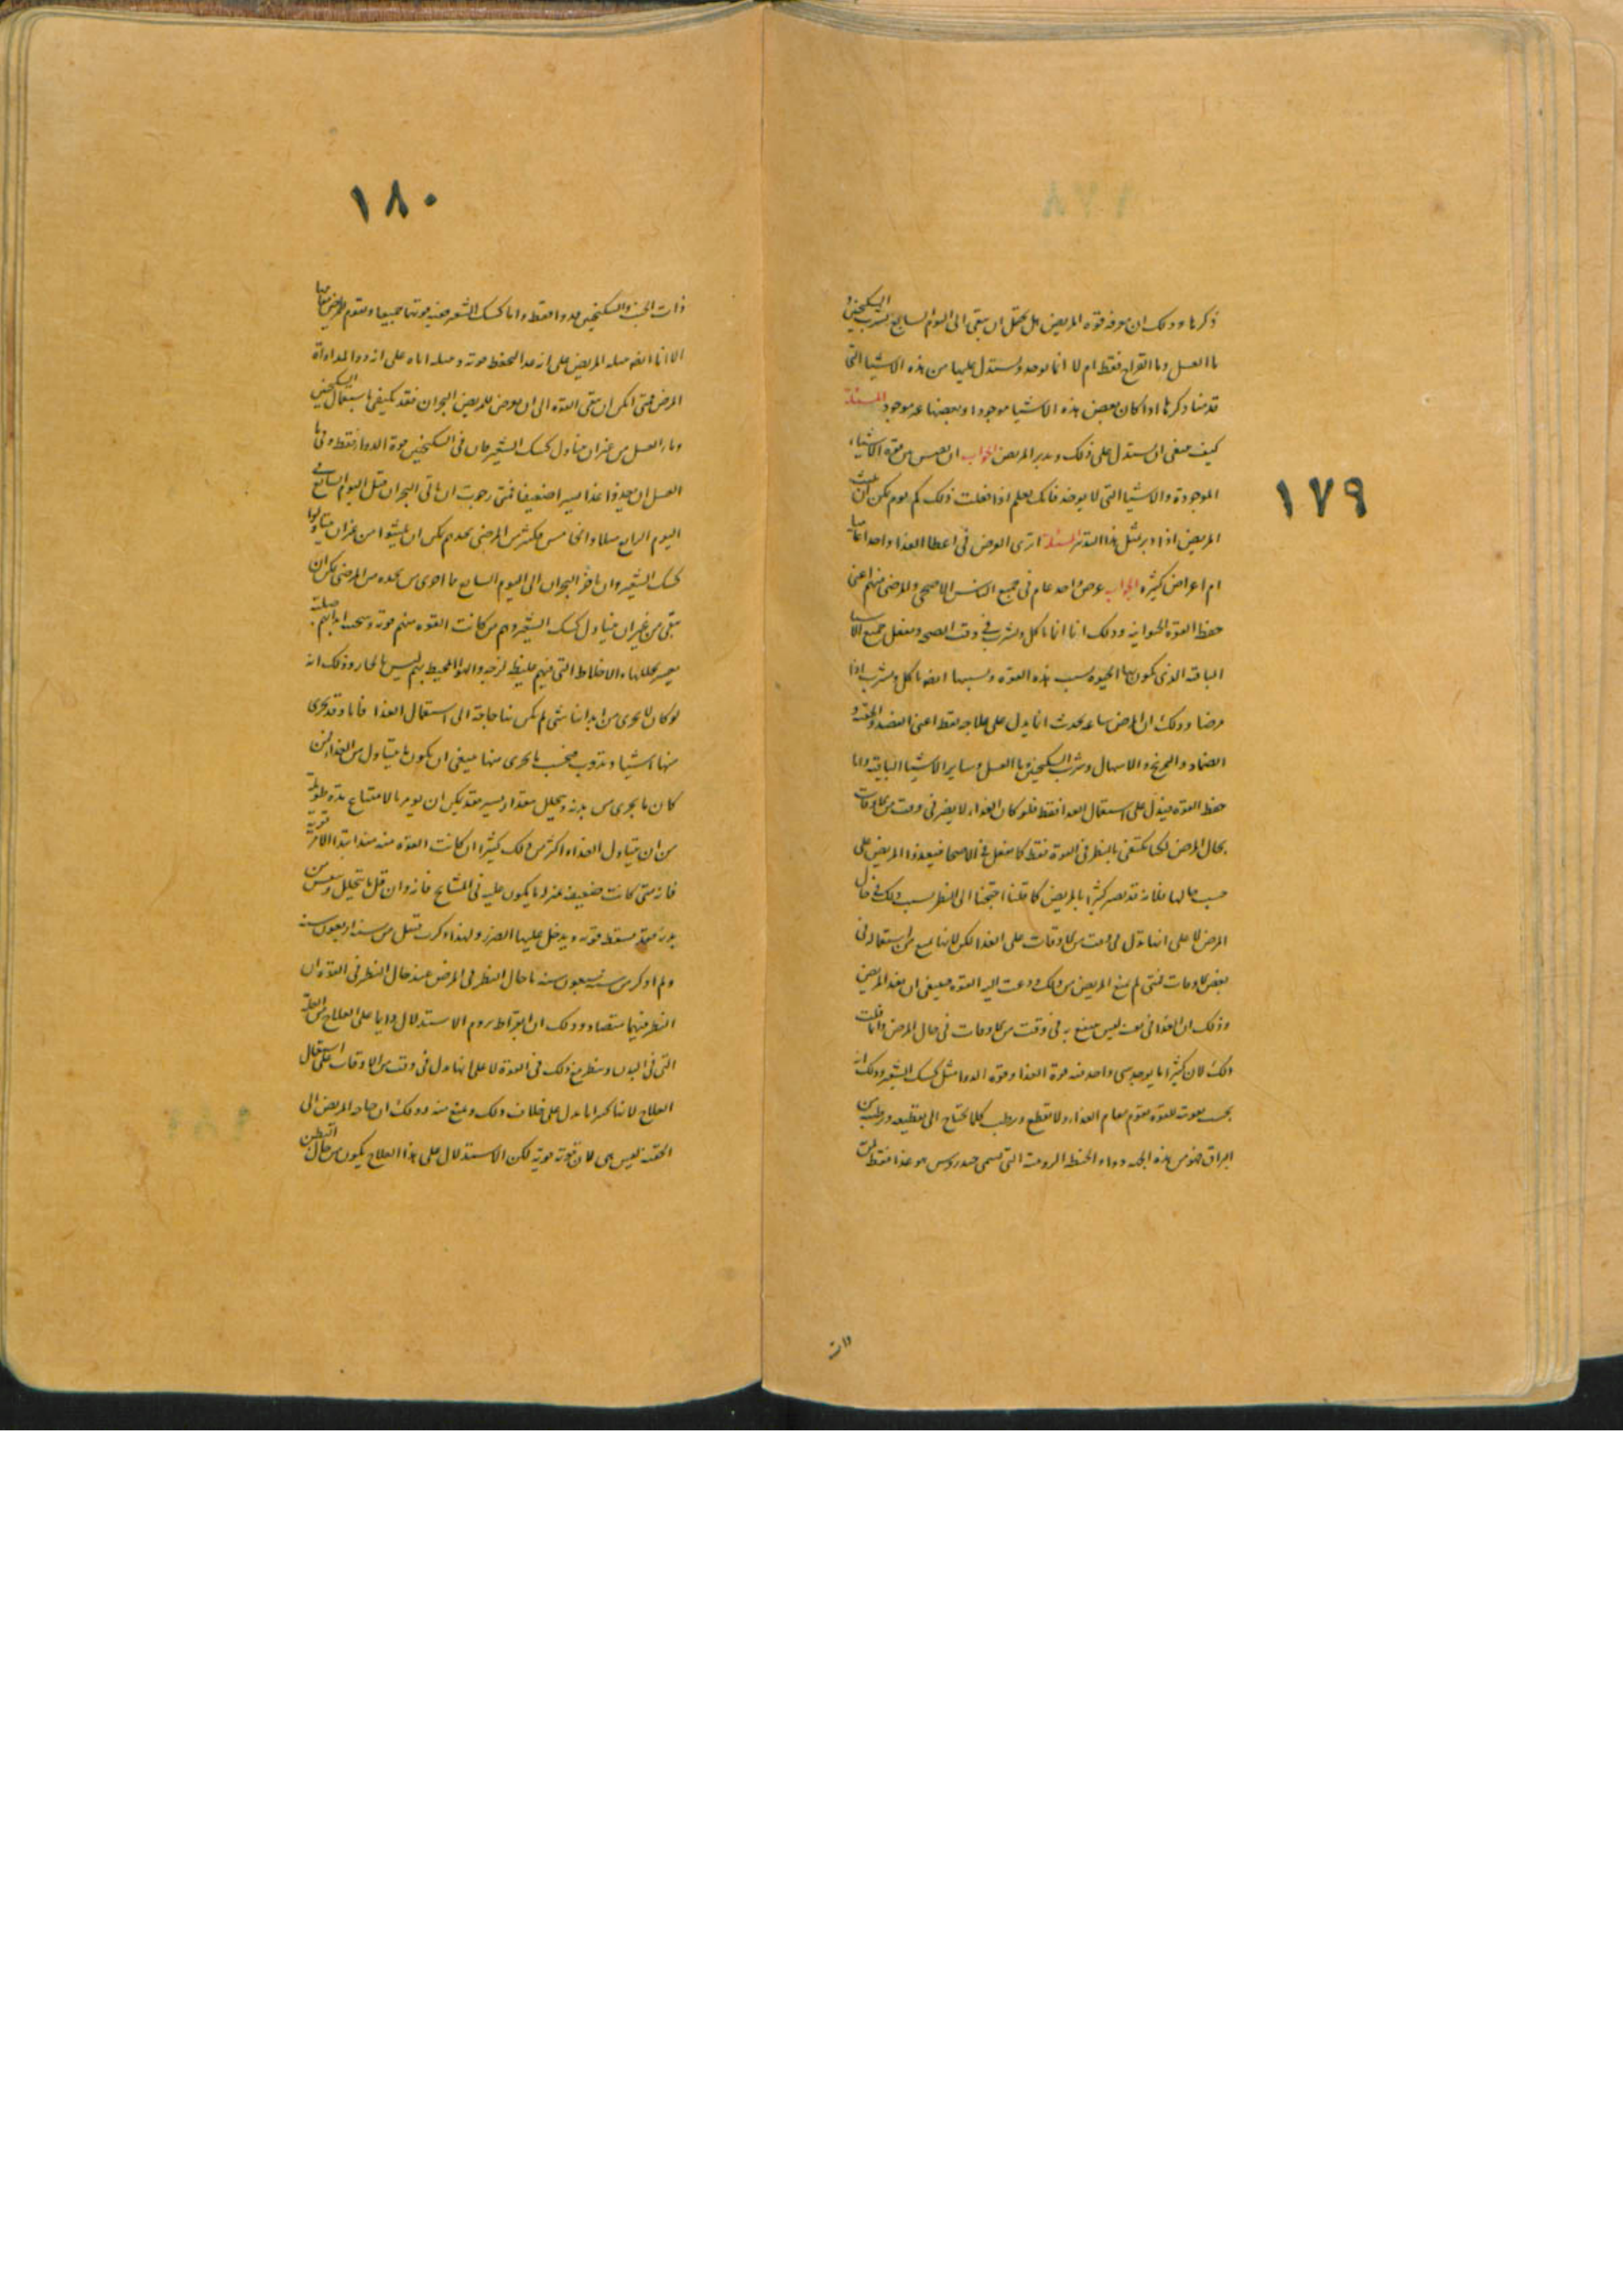 ١٧٩
ذكرها وذلك ان معرفة قوة المريض هل يحتمل ان يبقى الى اليوم السابع بشرب السكنجبين و
ما العسل وما القراح فقط ام لا انما يوجد ويستدل عليها من هذه الاشيا التى
قدمنا ذكرها اذا كان بعض هذه الاشيا موجودا وبعضها غير موجود المسئلة
كيف ينبغى ان يستدل على ذلك ويدبر المريض الجواب ان الاشياء
الموجودة والاشيا التى لا يوجد فانك تعلم اذا فعلت ذلك كم يوم يمكن ان يعيش
المريض اذا دبر بمثل هذا التدبير المسئلة اترى الغرض فى اعطا الغذا واحد
ام اعراض كثيرة الجواب غرض واحد عام فى جميع الناس الاصحى والمرضى منهم اعنى
حفظ القوة الحيوانية وذلك انا انما ناكل ونشرب فى وقت الصحة ونفعل جميع الاشيا
الباقية الذى يكون بها الحيوة بسبب هذه القوة وبسببها ايضا ناكل ونشرب اذا
مرضنا وذلك ان المرض ساعة يحدث انما يدل على علاجه فقط اعنى الفصد والحقنة و
الضماد والتمريخ والاسهال وشرب السكنجبين وما العسل وساير الاشيا الباقية واما
حفظ القوة فيدل على استعمال الغذا فقط فلو كان الغذاء لا يضر فى وقت من الاوقات
بحال المرض لكنا نكتفى بالنظر فى القوة فقط كما نفعل فى الاصحا فيغذوا المريض على
حسب حالها فلانه قد يضر كثيرا بالمريض كما قلنا احتجنا الى النظر بسبب ذلك فى حال
المرض لا على انها تدل فى وقت من الاوقات على الغذا لكن لانها تمنع من استعماله فى
بعض الاوقات فمتى لم يمنع المريض من ذلك ودعت اليه القوة فينبغى ان يغذا المريض
وذلك ان الغذا فى نفسه ليس ينتفع به فى وقت من الاوقات فى حال المرض وانما قلت
ذلك لان كثيرا ما يوجد شى واحد فيه قوة الغذا وقوة الدوا مثل كشك الشعير وذلك انه
بحسب تقويته للقوة يقوم مقام الغذاء ولا يقطع ويرطب كلما يحتاج الى تقطيعه وترطيبه من
البزاق فهو من هذه الجهة دواء والحنطة الرومية التى تسمى خندروس هو غذا فقط
ذات
١٨٠
ذات الجنب والسكنجبين هو دوا فقط واما كشك الشعير ففيه قوتهما جميعا ويقوم للمريض مقامهما
المرض فمتى امكن ان تبقى القوة الى ان يعرض للمريض البحران فقد نكتفى باستعمال السكنجبين
وماء العسل من غير ان يتناول كشك الشعير فان فى السكنجبين قوة الدواء فقط وفى ما
العسل ان يغذوا غذا يسيرا ضعيفا فمتى رجوت ان ياتى البحران قبل اليوم السابع فى
اليوم الرابع مثلا والخامس فكثير من المرضى بحدهم يمكن ان يعيشوا من غير ان يتناولوا
كشك الشعير وان تاخر البحران الى اليوم السابع ما احوى من نجده من المرضى يمكن ان
يبقى من غير ان يتناول كشك الشعير وهم من كانت القوة منهم قوية وسحنة ابدانهم صلبة
يعسر تحللها والاخلاط التى فيهم غليظة لزجة والهوا المحيط بهم ليس بالحار وذلك انه
لو كان لا يجرى من ابداننا شى لم يكن بنا حاجة الى استعمال الغذا فاما وقد يجرى
منها اشيا وتذوب فبحسب ما يجرى منها ينبغى ان يكون ما يتناول من الغذا لمن
كان ما يجرى من بدنه ويتحلل مقدار يسير فقد يمكن ان يومر بالامتناع مدة طويلة
من ان يتناول الغذاء اكثر من ذلك كثيرا ان كانت القوة منه منذ ابتدا الامر قوية
فانه متى كانت ضعيفة بمنزلة ما يكون عليه فى المشايخ فانه وان قل ما يتحلل من
بدنه فقد تسقط قوته ويدخل عليها الضرر ولهذا ذكرت قبيل من سنه اربعون سنة
ولم اذكر من سنه سبعون سنة ما حال النظر فى المرض عند حال النظر فى القوة ان
النظر فيهما متضاد وذلك ان ابقراط يروم الاستدلال دايما على العلاج من العلة
التى فى البدن وينظر مع ذلك فى القوة لا على انها تدل فى وقت من الاوقات على استعمال
العلاج لانها كثيرا ما تدل على خلاف ذلك وتمنع منه وذلك ان حاجة المريض الى
الحقنة ليس هى لان قوته قوية لكن الاستدلال على هذا العلاج يكون من حال البطن